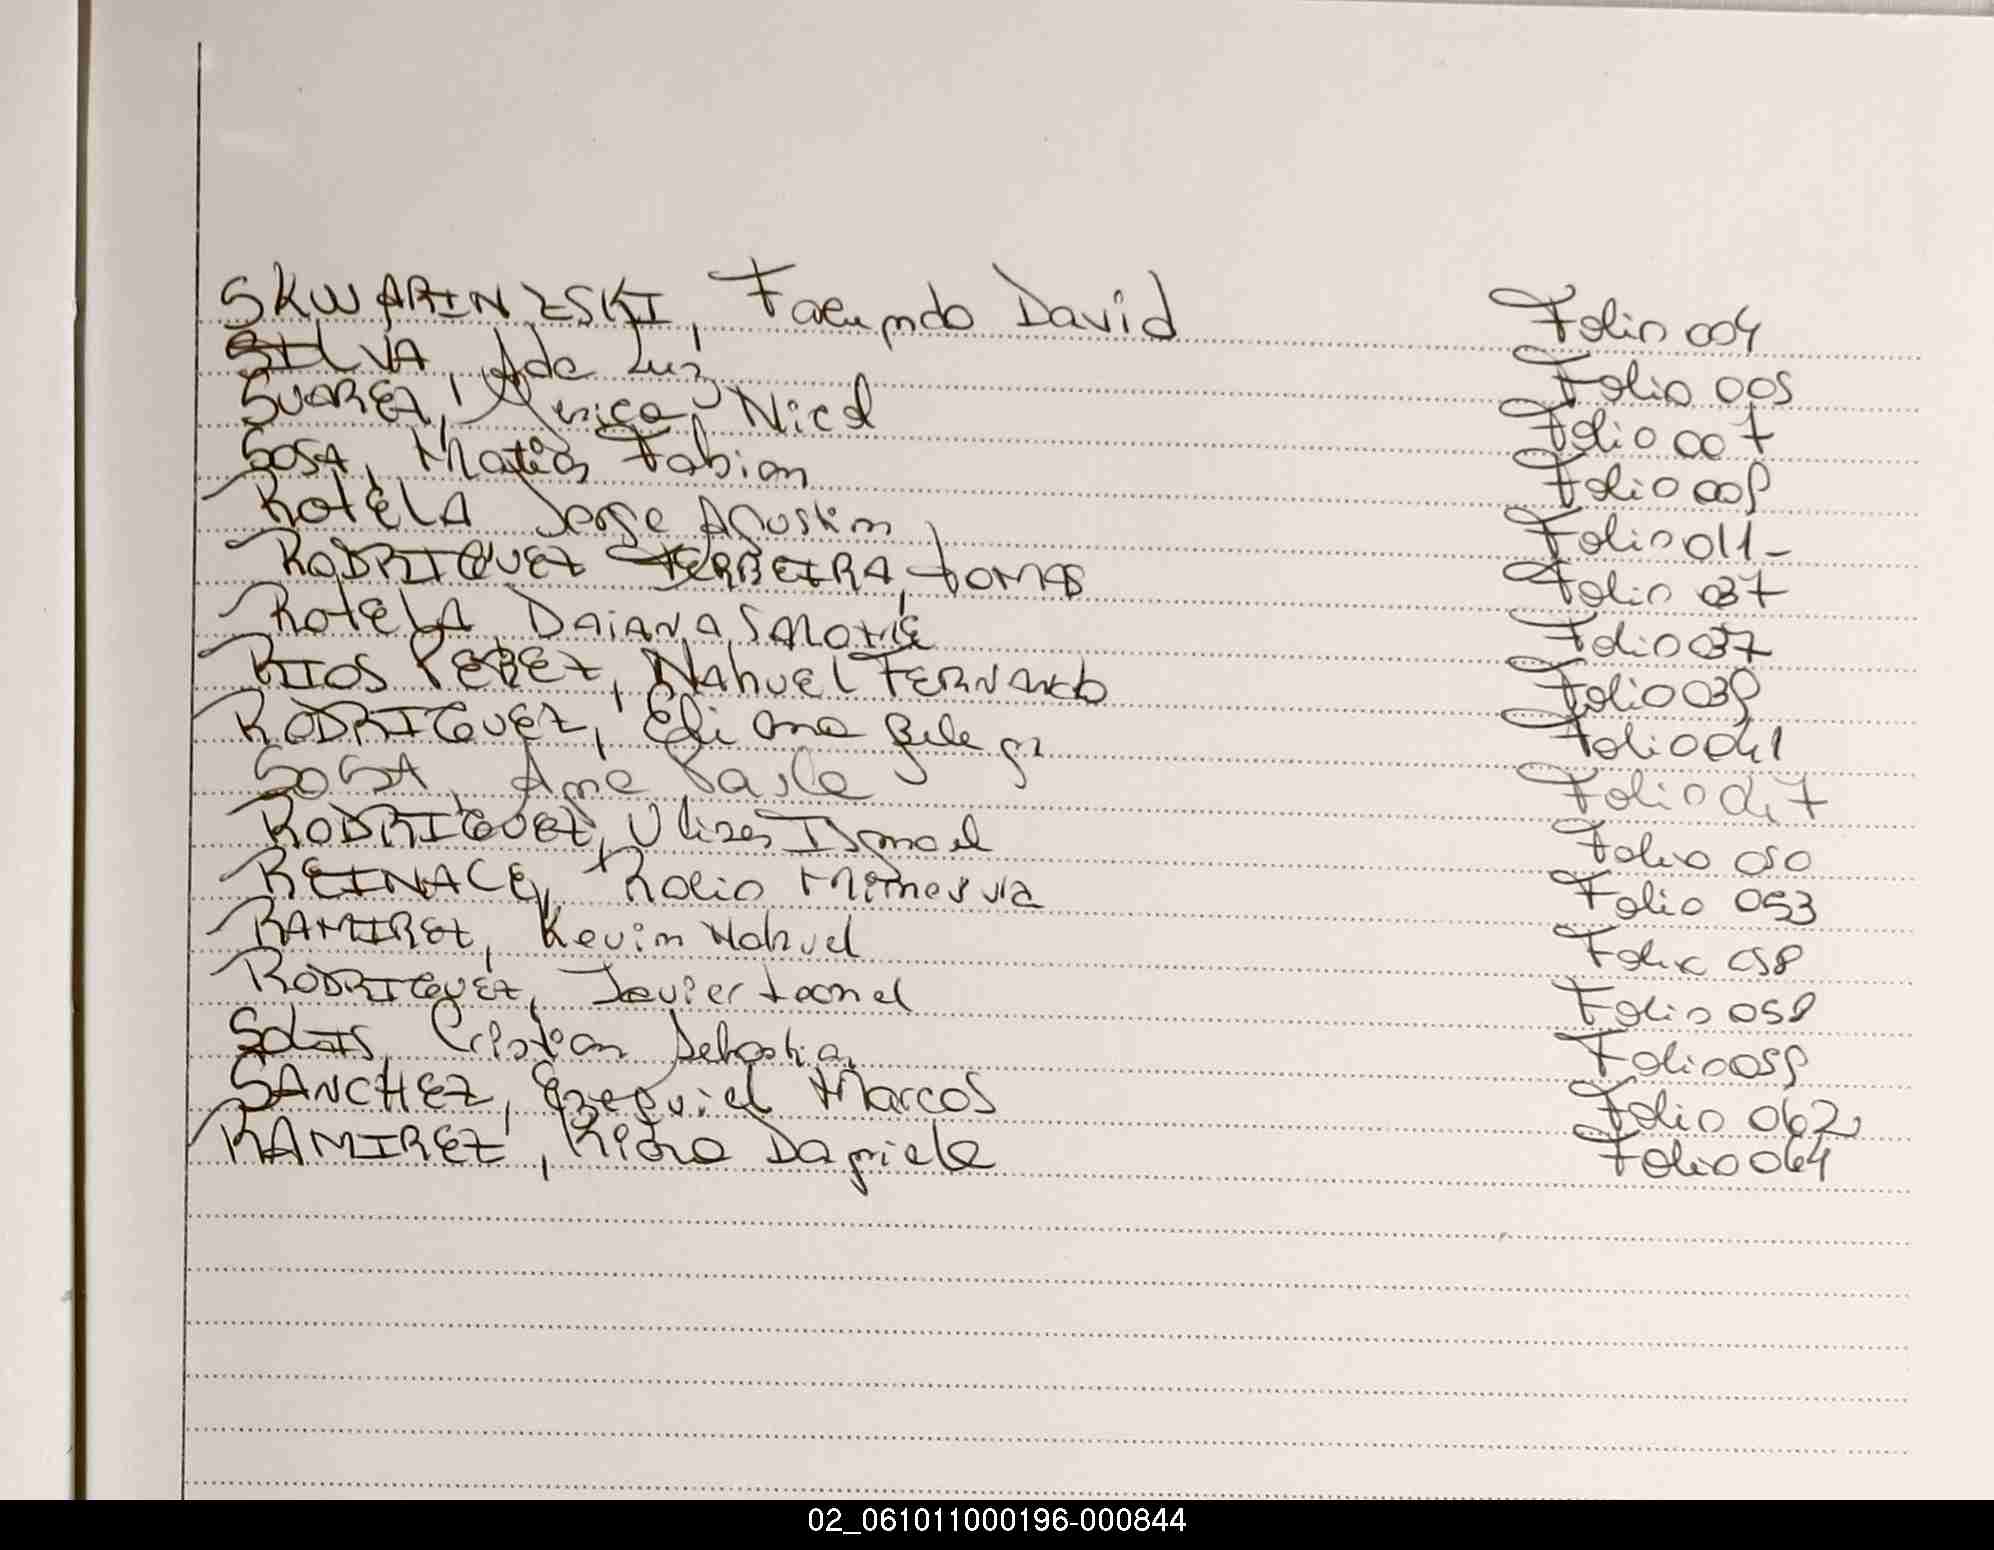 SKWARINZSKI, Facundo David Folio 004
SILVA, Ada Luz Folio 005
SUAREZ, Nicol Folio 007
SOSA, Matias Fabian Folio 009
ROTELA Jorge Agustin Folio 011-
RODRIGUEZ FERREIRA, TOMAS Folio 037
ROTELA, DAIANA Folio 037
RIOS PEREZ, NAHUEL FERNANDO Folio 039
RODRIGUEZ, Eliana Belen Folio 041
SOSA, Ana Paula Folio 047
RODRIGUEZ, Ulises Ismael Folio 050
REINACE, Rocio Minerva Folio 053
RAMIREZ, Kevin Nahuel Folio 058
RODRIGUEZ, Javier Leonel Folio 058
SOLIS, Cristian Sebastian Folio 059
SANCHEZ, Ezequiel Marcos Folio 062
RAMIREZ, Daniela Folio 064
02_061011000196-000844